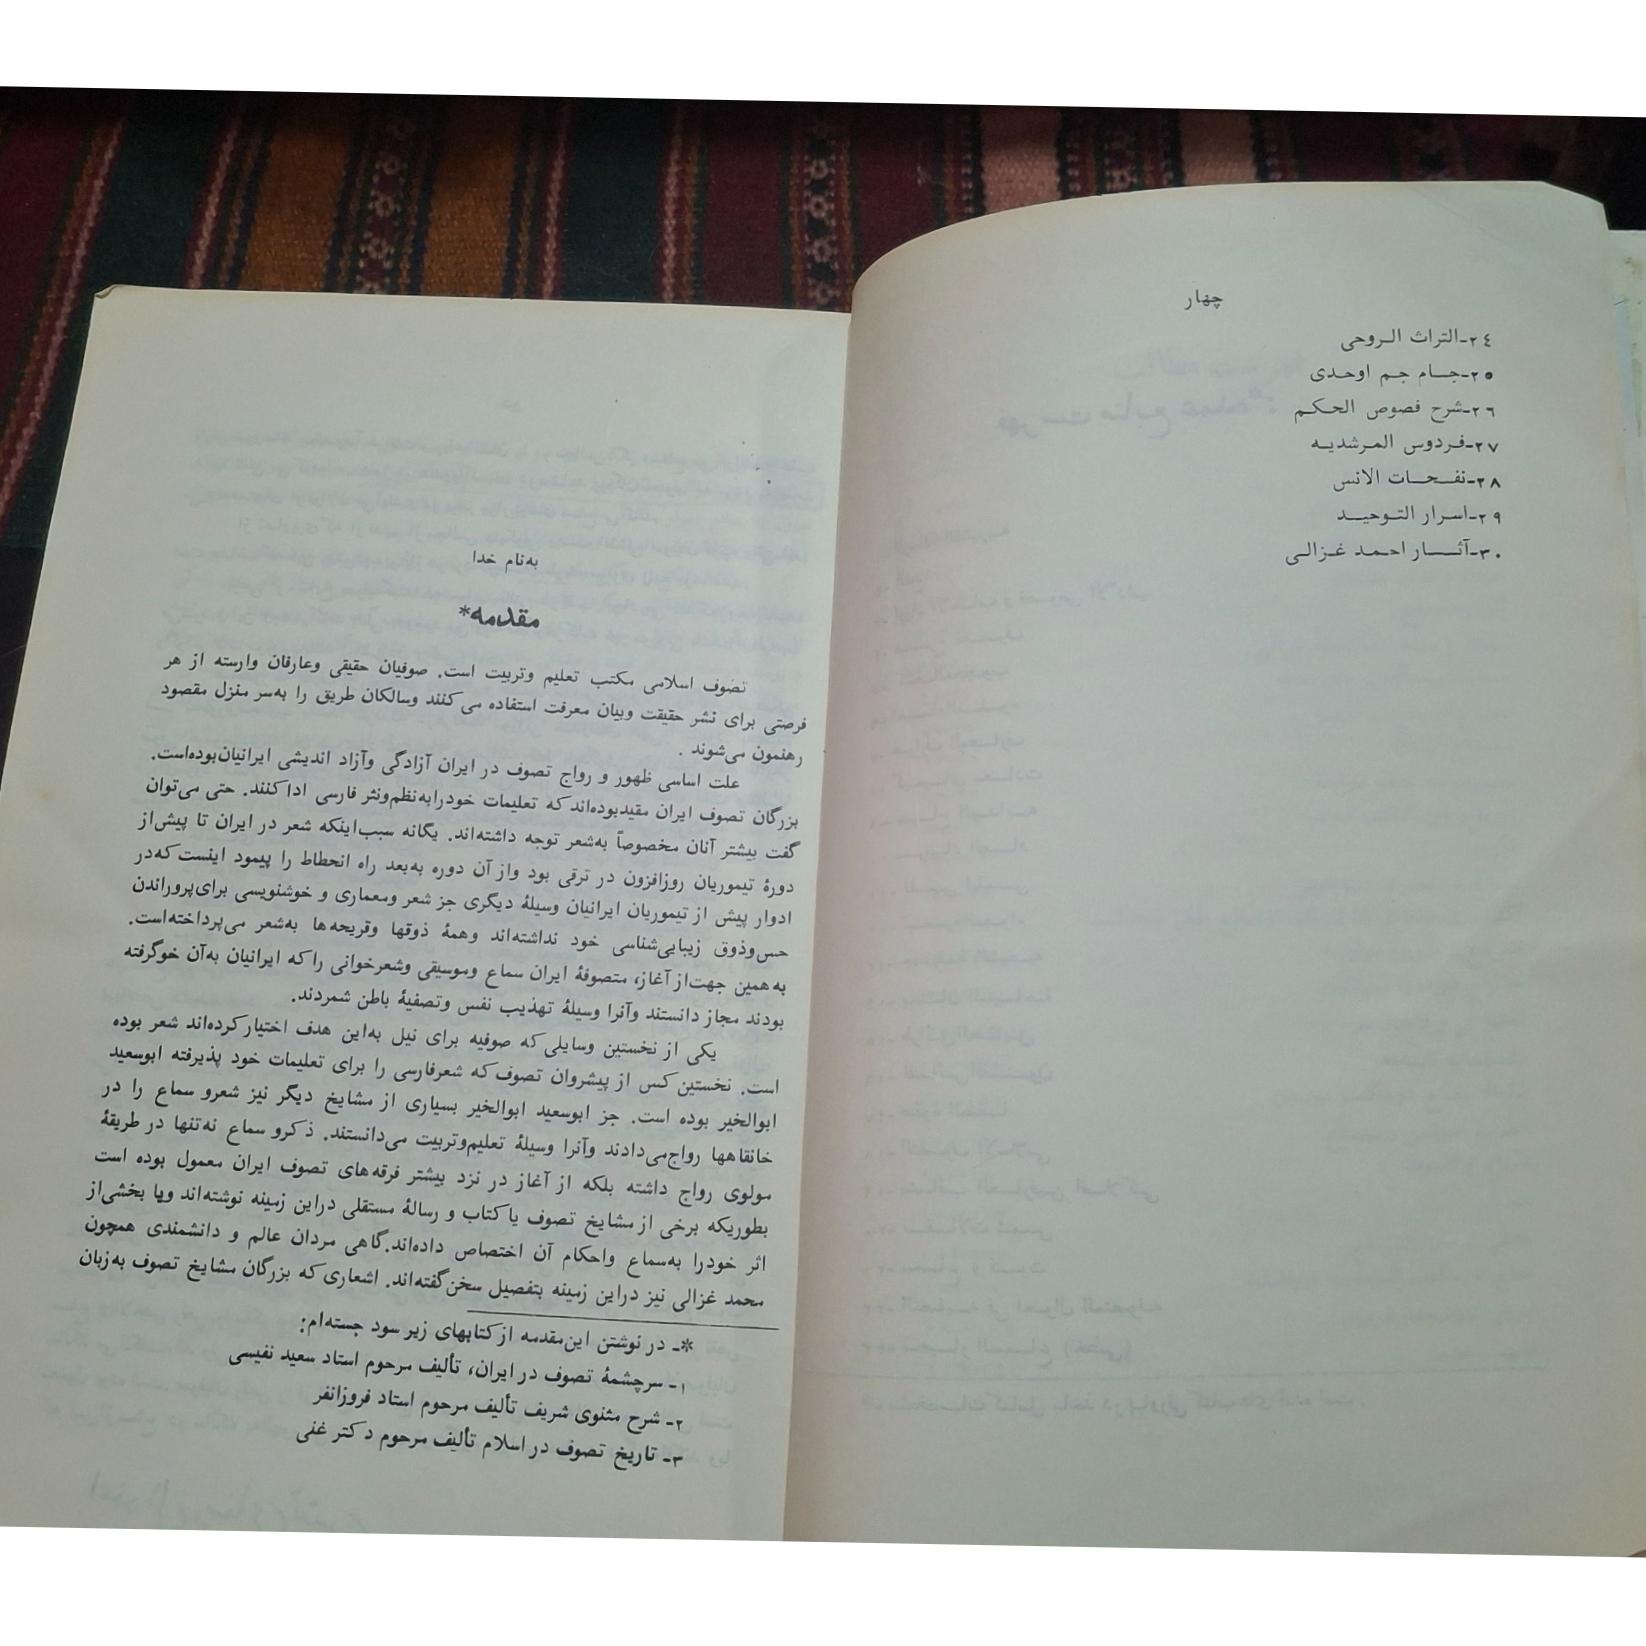 چهار
٢٤ـالتراث الـروحی
٢٥ـجـــام جـم اوحـدی
٢٦ـشرح فصوص الحـکـم
٢٧ـفـردوس المـرشدیـه
٢٨ـنفـــحـــات الانس
٢٩ـاسـرار التـوحیـــد
٣٠ـآثــــار احـمـد غـزالـی
به‌نام خدا
مقدمه*
تصوف اسلامی مکتب تعلیم وتربیت است. صوفیان حقیقی وعارفان وارسته از هر
فرصتی برای نشر حقیقت وبیان معرفت استفاده می‌کنند وسالکان طریق را به‌سر منزل مقصود
رهنمون می‌شوند .
علت اساسی ظهور و رواج تصوف در ایران آزادگی وآزاد اندیشی ایرانیان‌بوده‌است.
بزرگان تصوف ایران مقیدبوده‌اندکه تعلیمات خودرابه‌نظم‌ونثر فارسی اداکنند. حتی می‌توان
گفت بیشتر آنان مخصوصاً به‌شعر توجه داشته‌اند. یگانه سبب‌اینکه شعر در ایران تا پیش‌از
دورۀ تیموریان روزافزون در ترقی بود واز آن دوره به‌بعد راه انحطاط را پیمود اینست‌که‌در
ادوار پیش از تیموریان ایرانیان وسیلۀ دیگری جز شعر ومعماری و خوشنویسی برای‌پروراندن
حس‌وذوق زیبایی‌شناسی خود نداشته‌اند وهمۀ ذوقها وقریحه‌ها به‌شعر می‌پرداخته‌است.
به‌همین جهت‌از آغاز، متصوفۀ ایران سماع وموسیقی وشعرخوانی راکه ایرانیان به‌آن خوگرفته
بودند مجاز دانستند وآنرا وسیلۀ تهذیب نفس وتصفیۀ باطن شمردند.
یکی از نخستین وسایلی‌که صوفیه برای نیل به‌این هدف اختیارکرده‌اند شعر بوده
است. نخستین‌کس از پیشروان تصوف‌که شعرفارسی را برای تعلیمات خود پذیرفته ابوسعید
ابوالخیر بوده است. جز ابوسعید ابوالخیر بسیاری از مشایخ دیگر نیز شعرو سماع را در
خانقاهها رواج‌می‌دادند وآنرا وسیلۀ تعلیم‌وتربیت می‌دانستند. ذکرو سماع نه‌تنها در طریقۀ
مولوی رواج داشته بلکه از آغاز در نزد بیشتر فرقه‌های تصوف ایران معمول بوده است
بطوریکه برخی از مشایخ تصوف یاکتاب و رسالۀ مستقلی دراین زمینه نوشته‌اند ویا بخشی‌از
اثر خودرا به‌سماع واحکام آن اختصاص داده‌اند.گاهی مردان عالم و دانشمندی همچون
محمد غزالی نیز دراین زمینه بتفصیل سخن‌گفته‌اند. اشعاری‌که بزرگان مشایخ تصوف به‌زبان
*ـ در نوشتن این‌مقدمه ازکتابهای زیر سود جسته‌ام:
١ـ سرچشمۀ تصوف در ایران، تألیف مرحوم استاد سعید نفیسی
٢ـ شرح مثنوی شریف تألیف مرحوم استاد فروزانفر
٣ـ تاریخ تصوف در اسلام تألیف مرحوم دکتر غنی